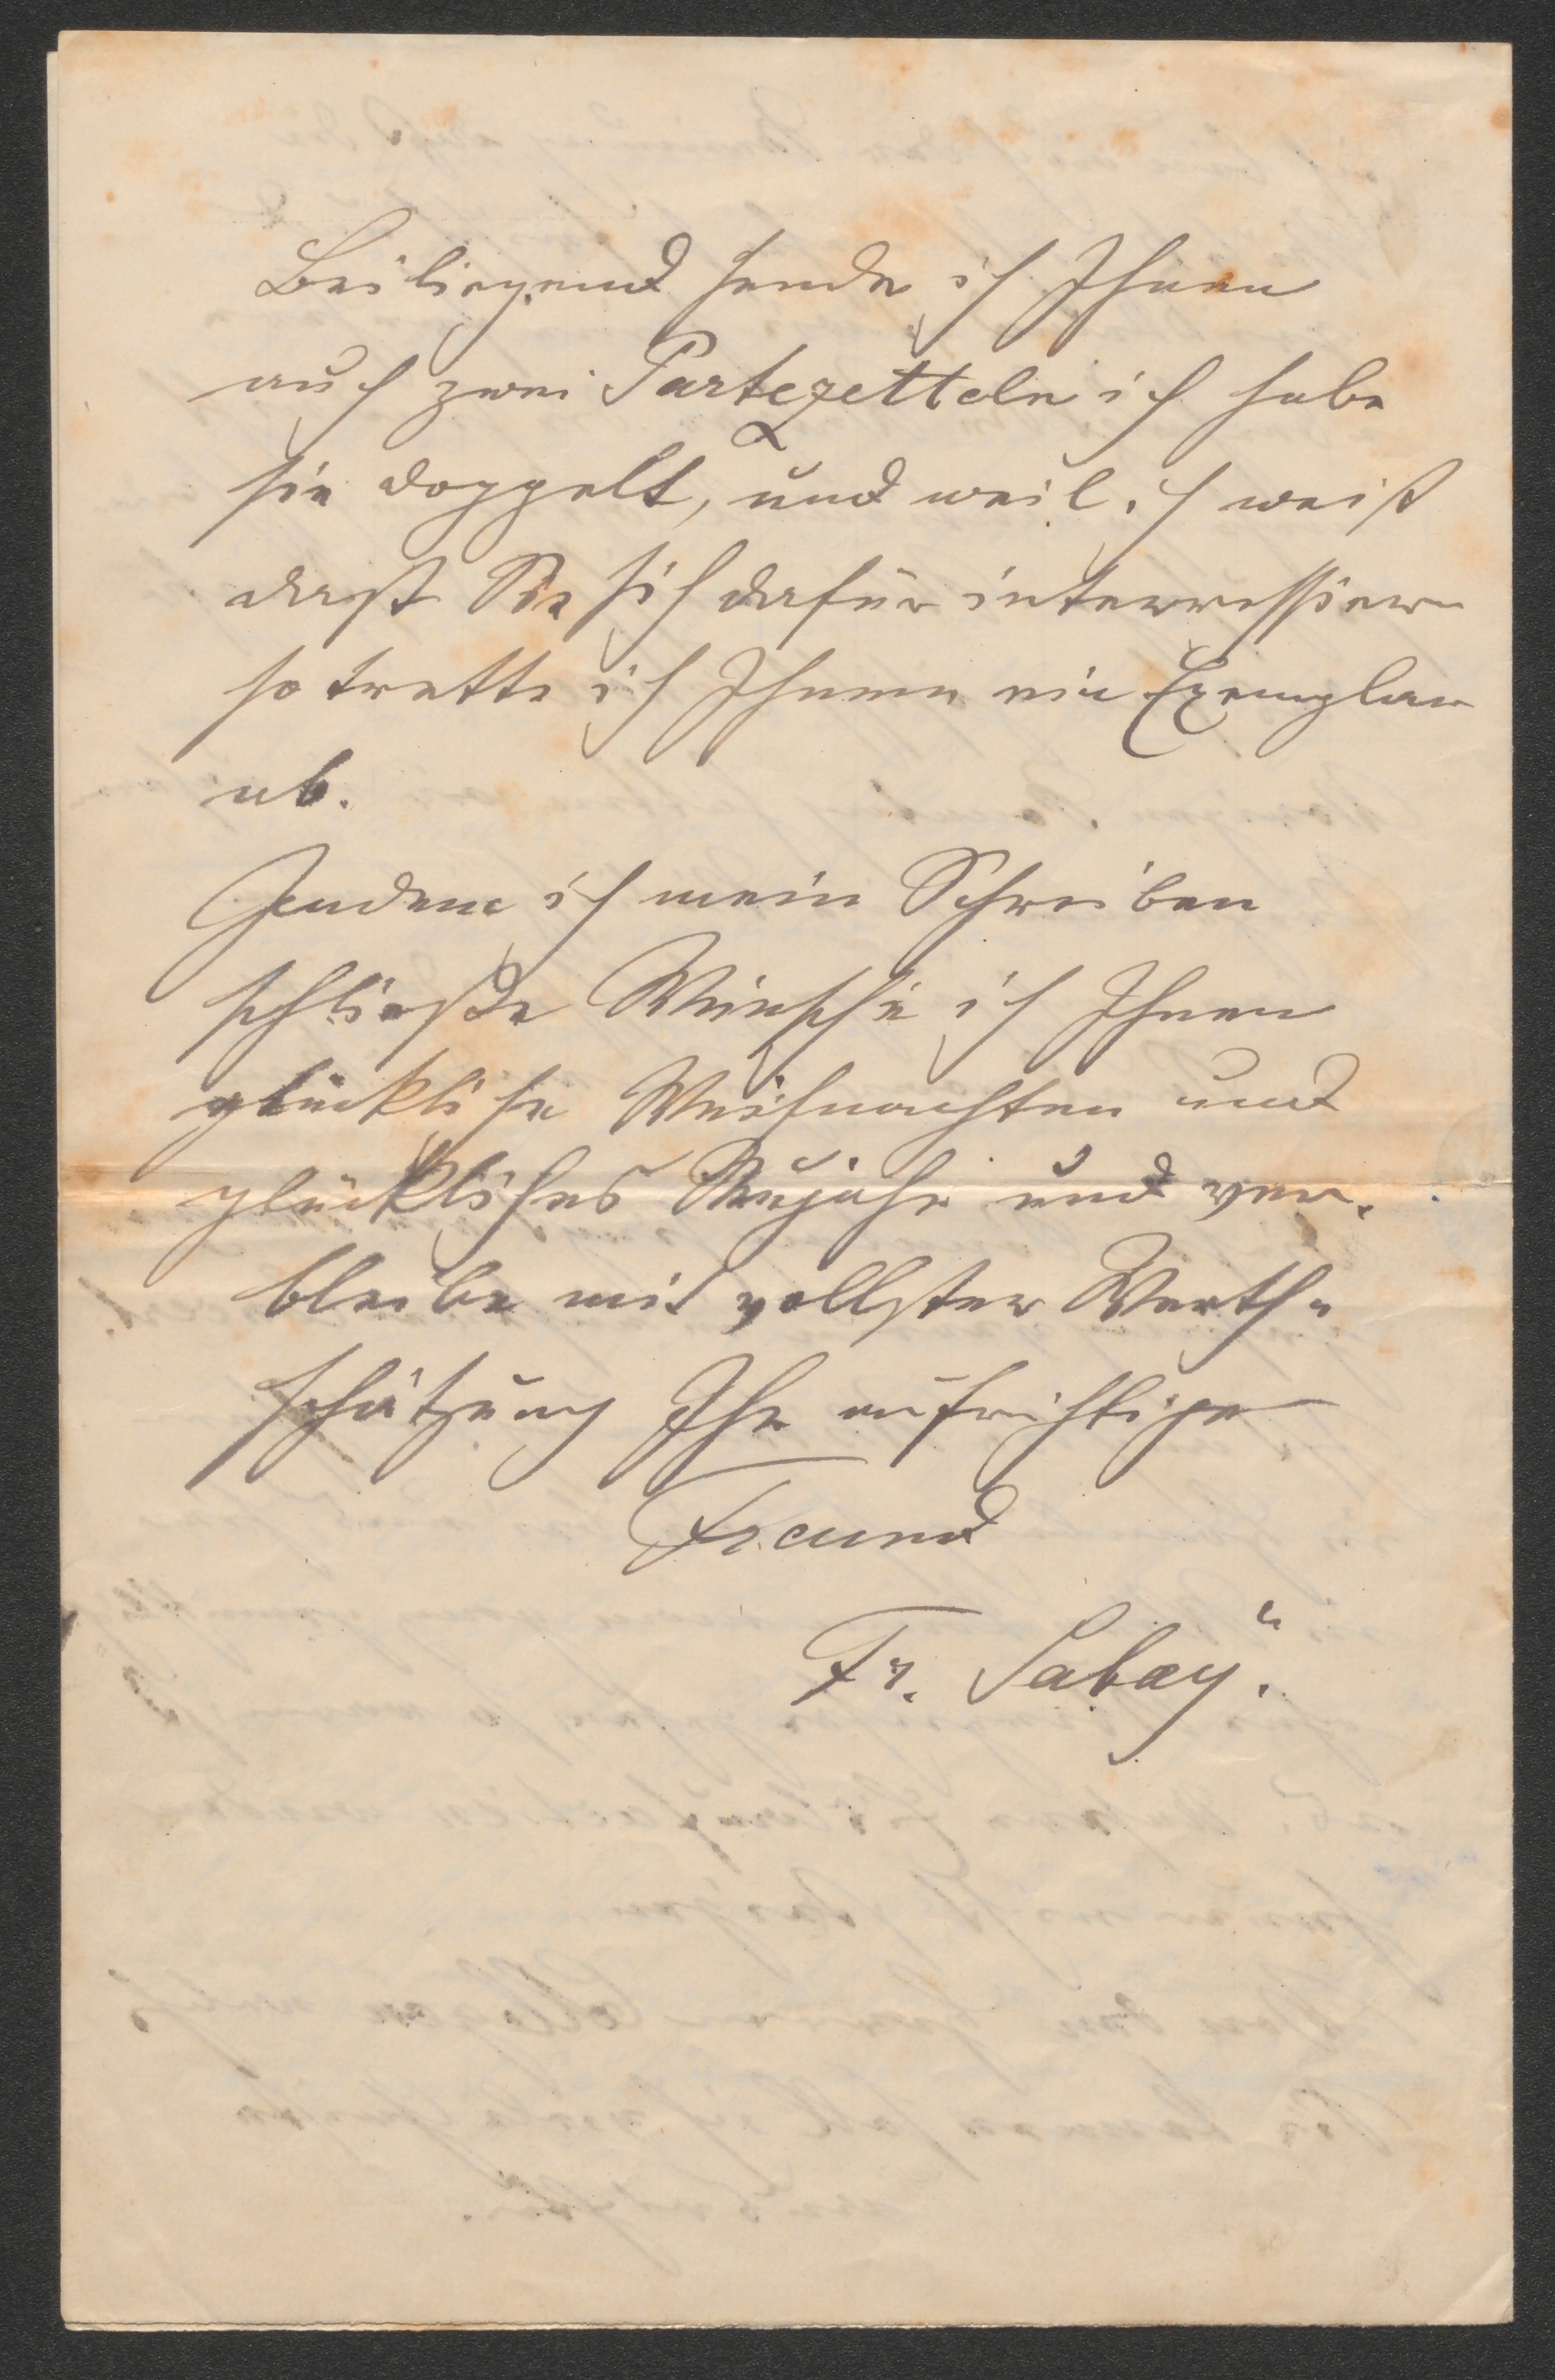 Beiliegend sende ich Ihnen
auch zwei Partezetteln ich habe
sie doppelt, und weil ich weiß
daß Sie sich dafür interressieren
so trette ich Ihnen ein Exemplar
ab.
Indem ich mein Schreiben
schließe Wünsche ich Ihnen
glückliche Weihnachten und
glückliches Neujahr und ver-
bleibe mit vollster Werth-
schätzung Ihr aufrichtiger
Freund
Fr. Sabay.